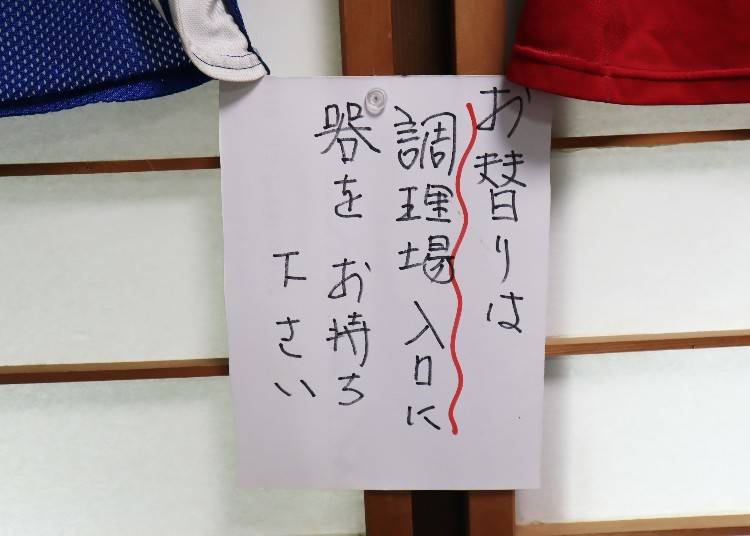 お替りは
調理場入口に
器をお持ち
下さい